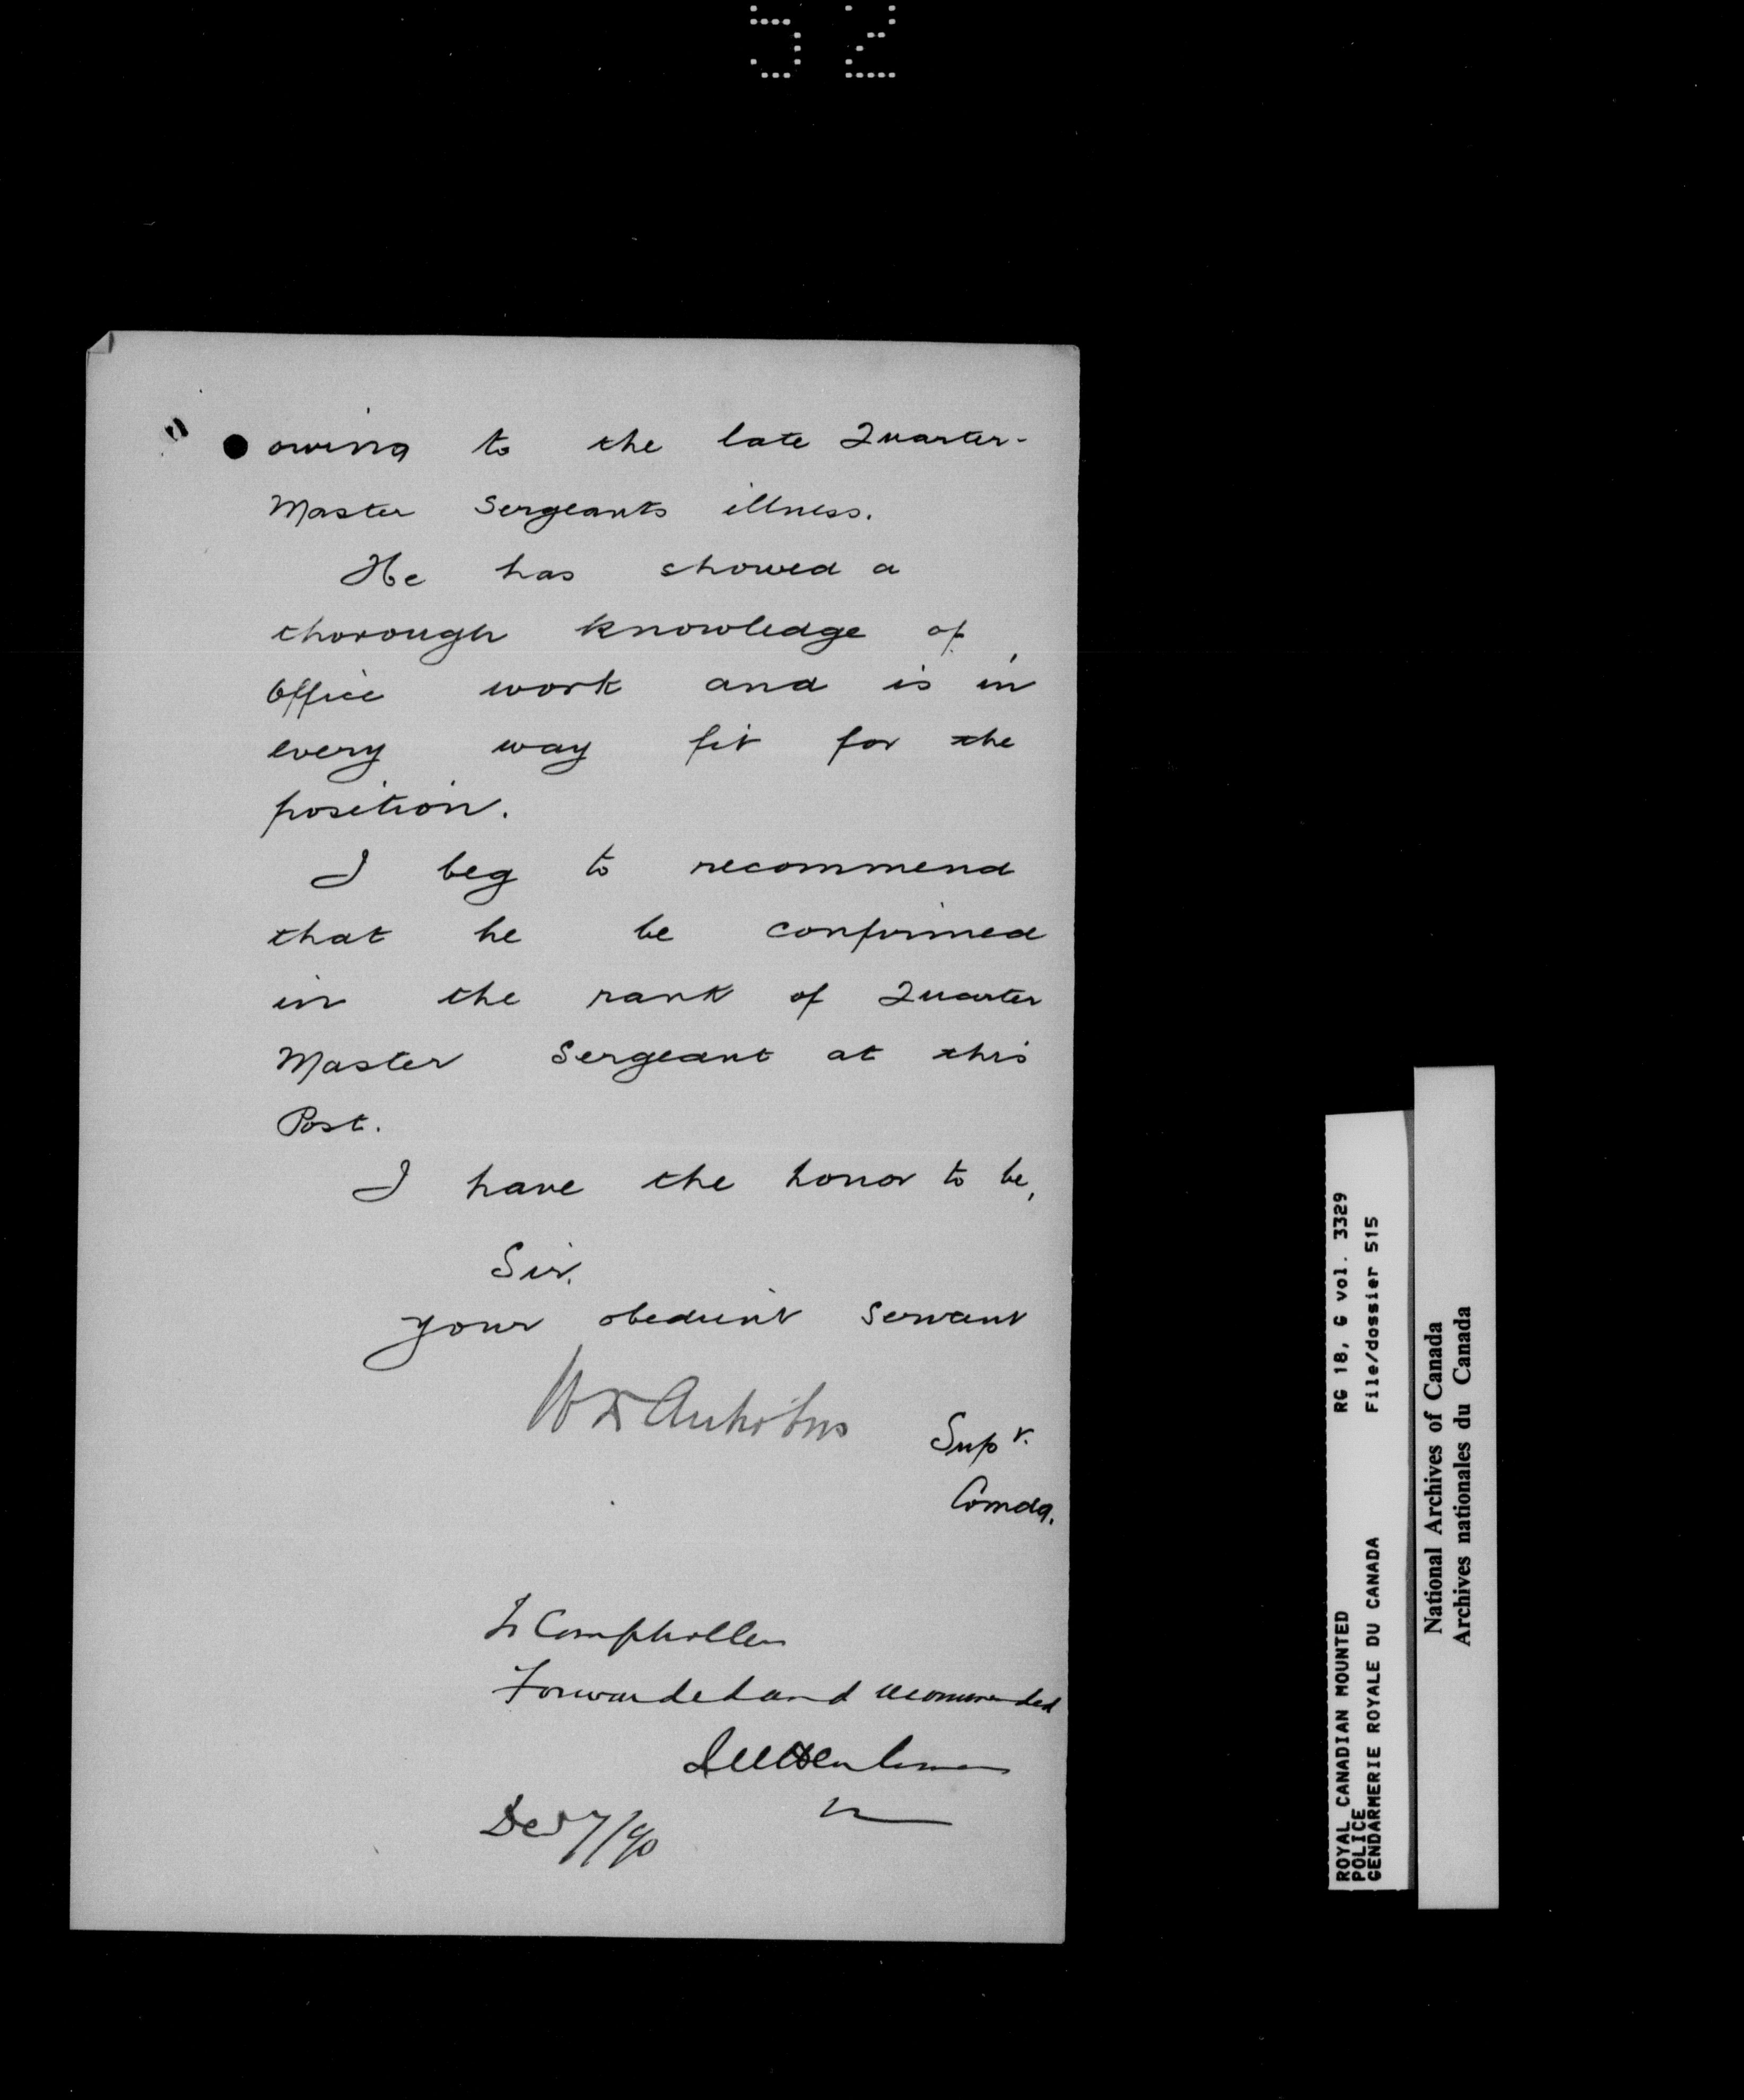 52
owing to the late Quarter-
Master Sergeants illness.
He has showed a
thorough knowledge of
Office work and is in
every way fit for the
position.
I beg to recommend
that he be confirmed
in the rank of Quarter
Master Sergeant at this
Post.
I have the honor to be,
Sir.
your obedient Servant
Supt.
Comdg.
To Comptroller
Forwarded and recommended
Dec 7/90
ROYAL CANADIAN MOUNTED
POLICE
GENDARMERIE ROYALE DU CANADA
RG 18, G vol. 3329
File/dossier 515
National Archives of Canada
Archives nationales du Canada